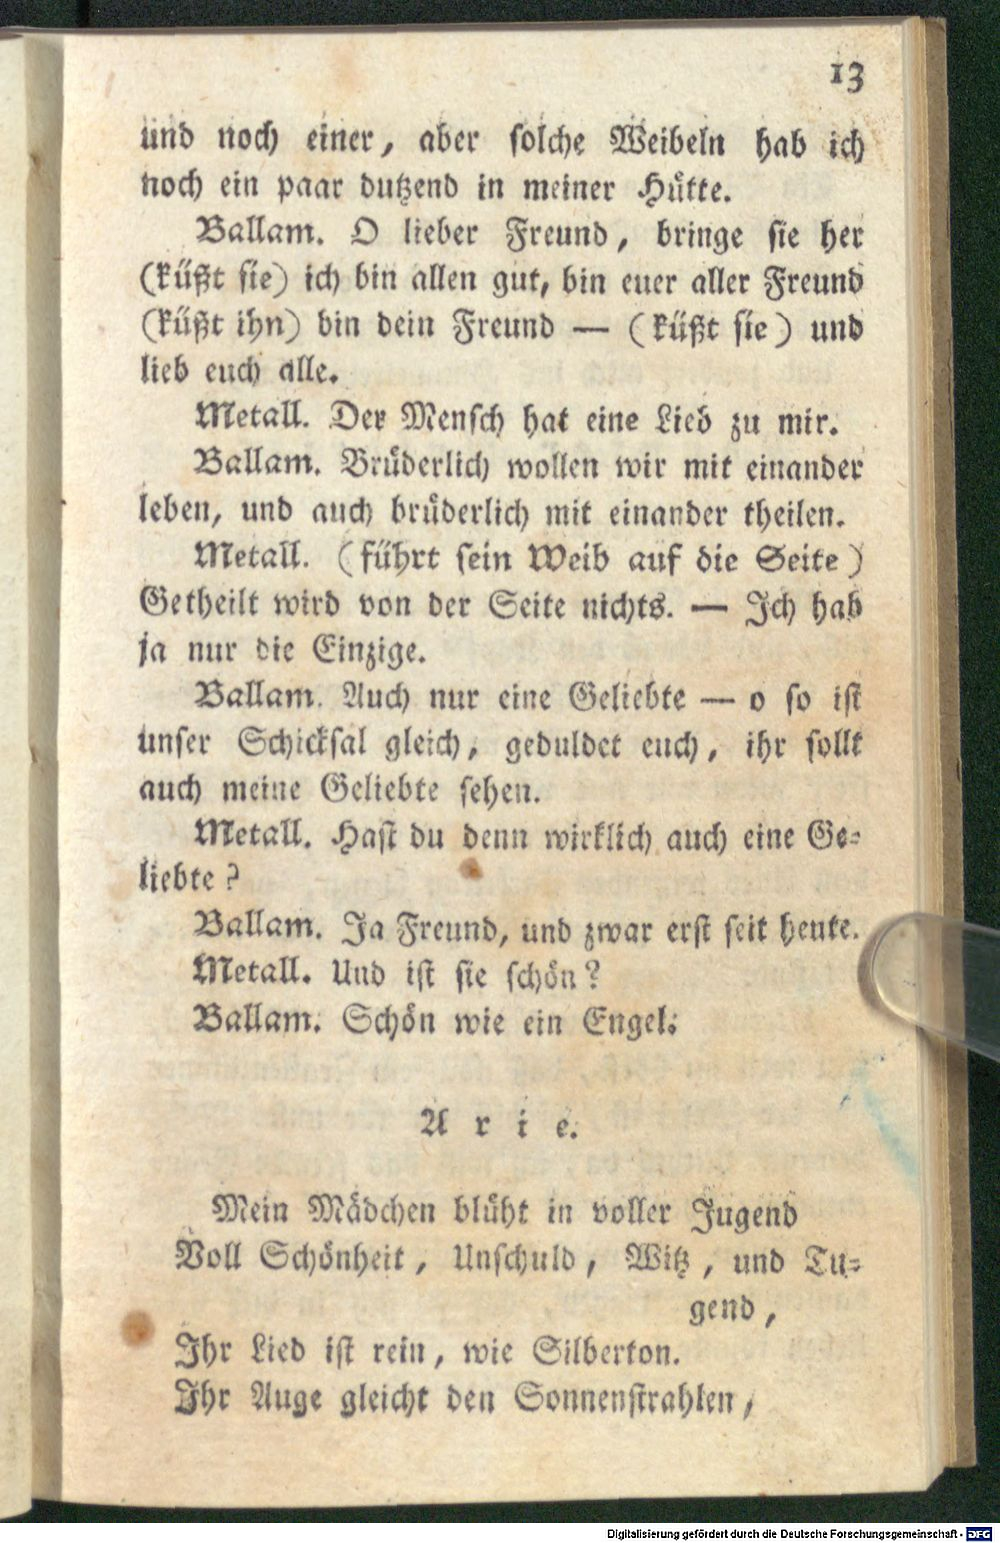 13
und noch einer, aber solche Weibeln hab ich
noch ein paar dutzend in meiner Hütte.
Ballam. O lieber Freund, bringe sie her
(küßt sie) ich bin allen gut, bin euer aller Freund
(küßt ihn) bin dein Freund — (küßt sie) und
lieb euch alle.
Metall. Der Mensch hat eine Lieb zu mir.
Ballam. Brüderlich wollen wir mit einander
leben, und auch brüderlich mit einander theilen.
Metall. (führt sein Weib auf die Seite)
Getheilt wird von der Seite nichts. — Ich hab
ja nur die Einzige.
Ballam. Auch nur eine Geliebte — o so ist
unser Schicksal gleich, geduldet euch, ihr sollt
auch meine Geliebte sehen.
Metall. Hast du denn wirklich auch eine Ge-
liebte?
Ballam. Ja Freund, und zwar erst seit heute.
Metall. Und ist sie schön?
Ballam. Schön wie ein Engel.
Arie.
Mein Mädchen blüht in voller Jugend
Voll Schönheit, Unschuld, Witz, und Tu-
gend,
Ihr Lied ist rein, wie Silberton.
Ihr Auge gleicht den Sonnenstrahlen,
Digitalisierung gefördert durch die Deutsche Forschungsgemeinschaft - DFG